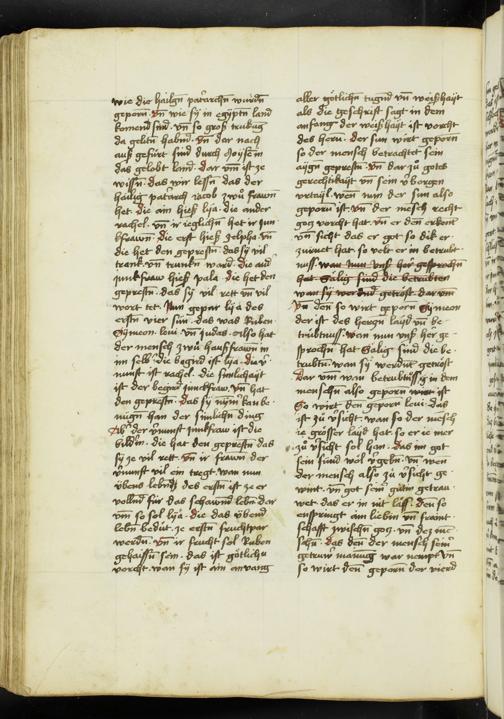 wie die hailgn patrarchn wurdn
geporn. Vn wie sy in egyptn land
komend sind. vn so groß trubug
da geliten habnd. vn dar nach
auß gefurt sind durch moysesn in
das gelobt land. dar vm ist ze
wissn. das wir lessn das der
hailig patarch iacob zwii frawn
hat. die ain hieß lya. die ander
rachel. vn ir ieglichn hat ir iun
kfrawn. die erst hieß zelpha vn
die het den geprestn das sy vil
trank vn trunkn ward. die and
iunkfraw hieß pala. die het den
geprestn. das sy vil rett vn vil
wort tet. Nun gepar lya des
erstn vier sun. das was Ruben
Symeon leui vn judas. also hat
der mensch zwu haußfrawn in
im selb. die begird ist lya. die v
nunft ist rachel. die sinlichayt
ist der begird junckfraw. vn hat
den geprestn. das sy nym kan be
nugn han der sinlichn ding
Aber der vnunft iunkfraw ist die
bildn. die hat den geprestn das
sy ze vil rett. vn ir frawn der
vnunft vil ein tregt. wan nun
vbend lebnds des erstn ist ze er
vollnd für das schawend lebn. dar
vm so sol lya. die das vbend
lebn bedut. ze erstn fruchtpar
werdn. vn ir frucht sol Ruben
gehaissn sein. das ist götlichu
vorcht. wan sy ist ain anvang
aller götlichn tugnd vn weißhayt
als die geschrift sagt in dem
anfang der weißhayt ist vorcht
des hern. der sun wirt geporn
so der mensch betrachtet sein
aygn geprestn. vn dar zu gotes
gerechtikayt vn sein vborgen
vrtayl. wen nun der sun also
geporn ist. vn der mesch recht
gog vorcht hat. vn er den erkent
vn sicht das er got so dik er
zürnet hat. so velt er in betrubt
nuß. wan nun vnß her gesprochn
hat Sälig sind die betrubten
wan sy werdnd getröst. dar vm
Vn den so wirt geporn Symeon
der ist des hergn layd vn be
trübtnuss. wen nun vnß her ge
sprochn hat Sälig sind die be
trubtn. wan sy werdnt getröst
Dar vm wan betrubtnüss ig in dem
menschn also geporn wirt ist
So wirt den geporn leui. das
ist zu vsicht. wan so der mesch
ie grösser layd hat. so er ie mer
zu vsicht sol han. das im got
sein sund wöl vgebn. vn wen
der mensch also zu vsicht ge
wint. vn got sein gutn getrau
wet. das er in nit laß. den so
entspringt ain liebin vn fraint
schaft zwischn gog. vn dez me
schn. das den der mensch seinr
getruwr manug war nempt vn
so wirt den geporn der vierd